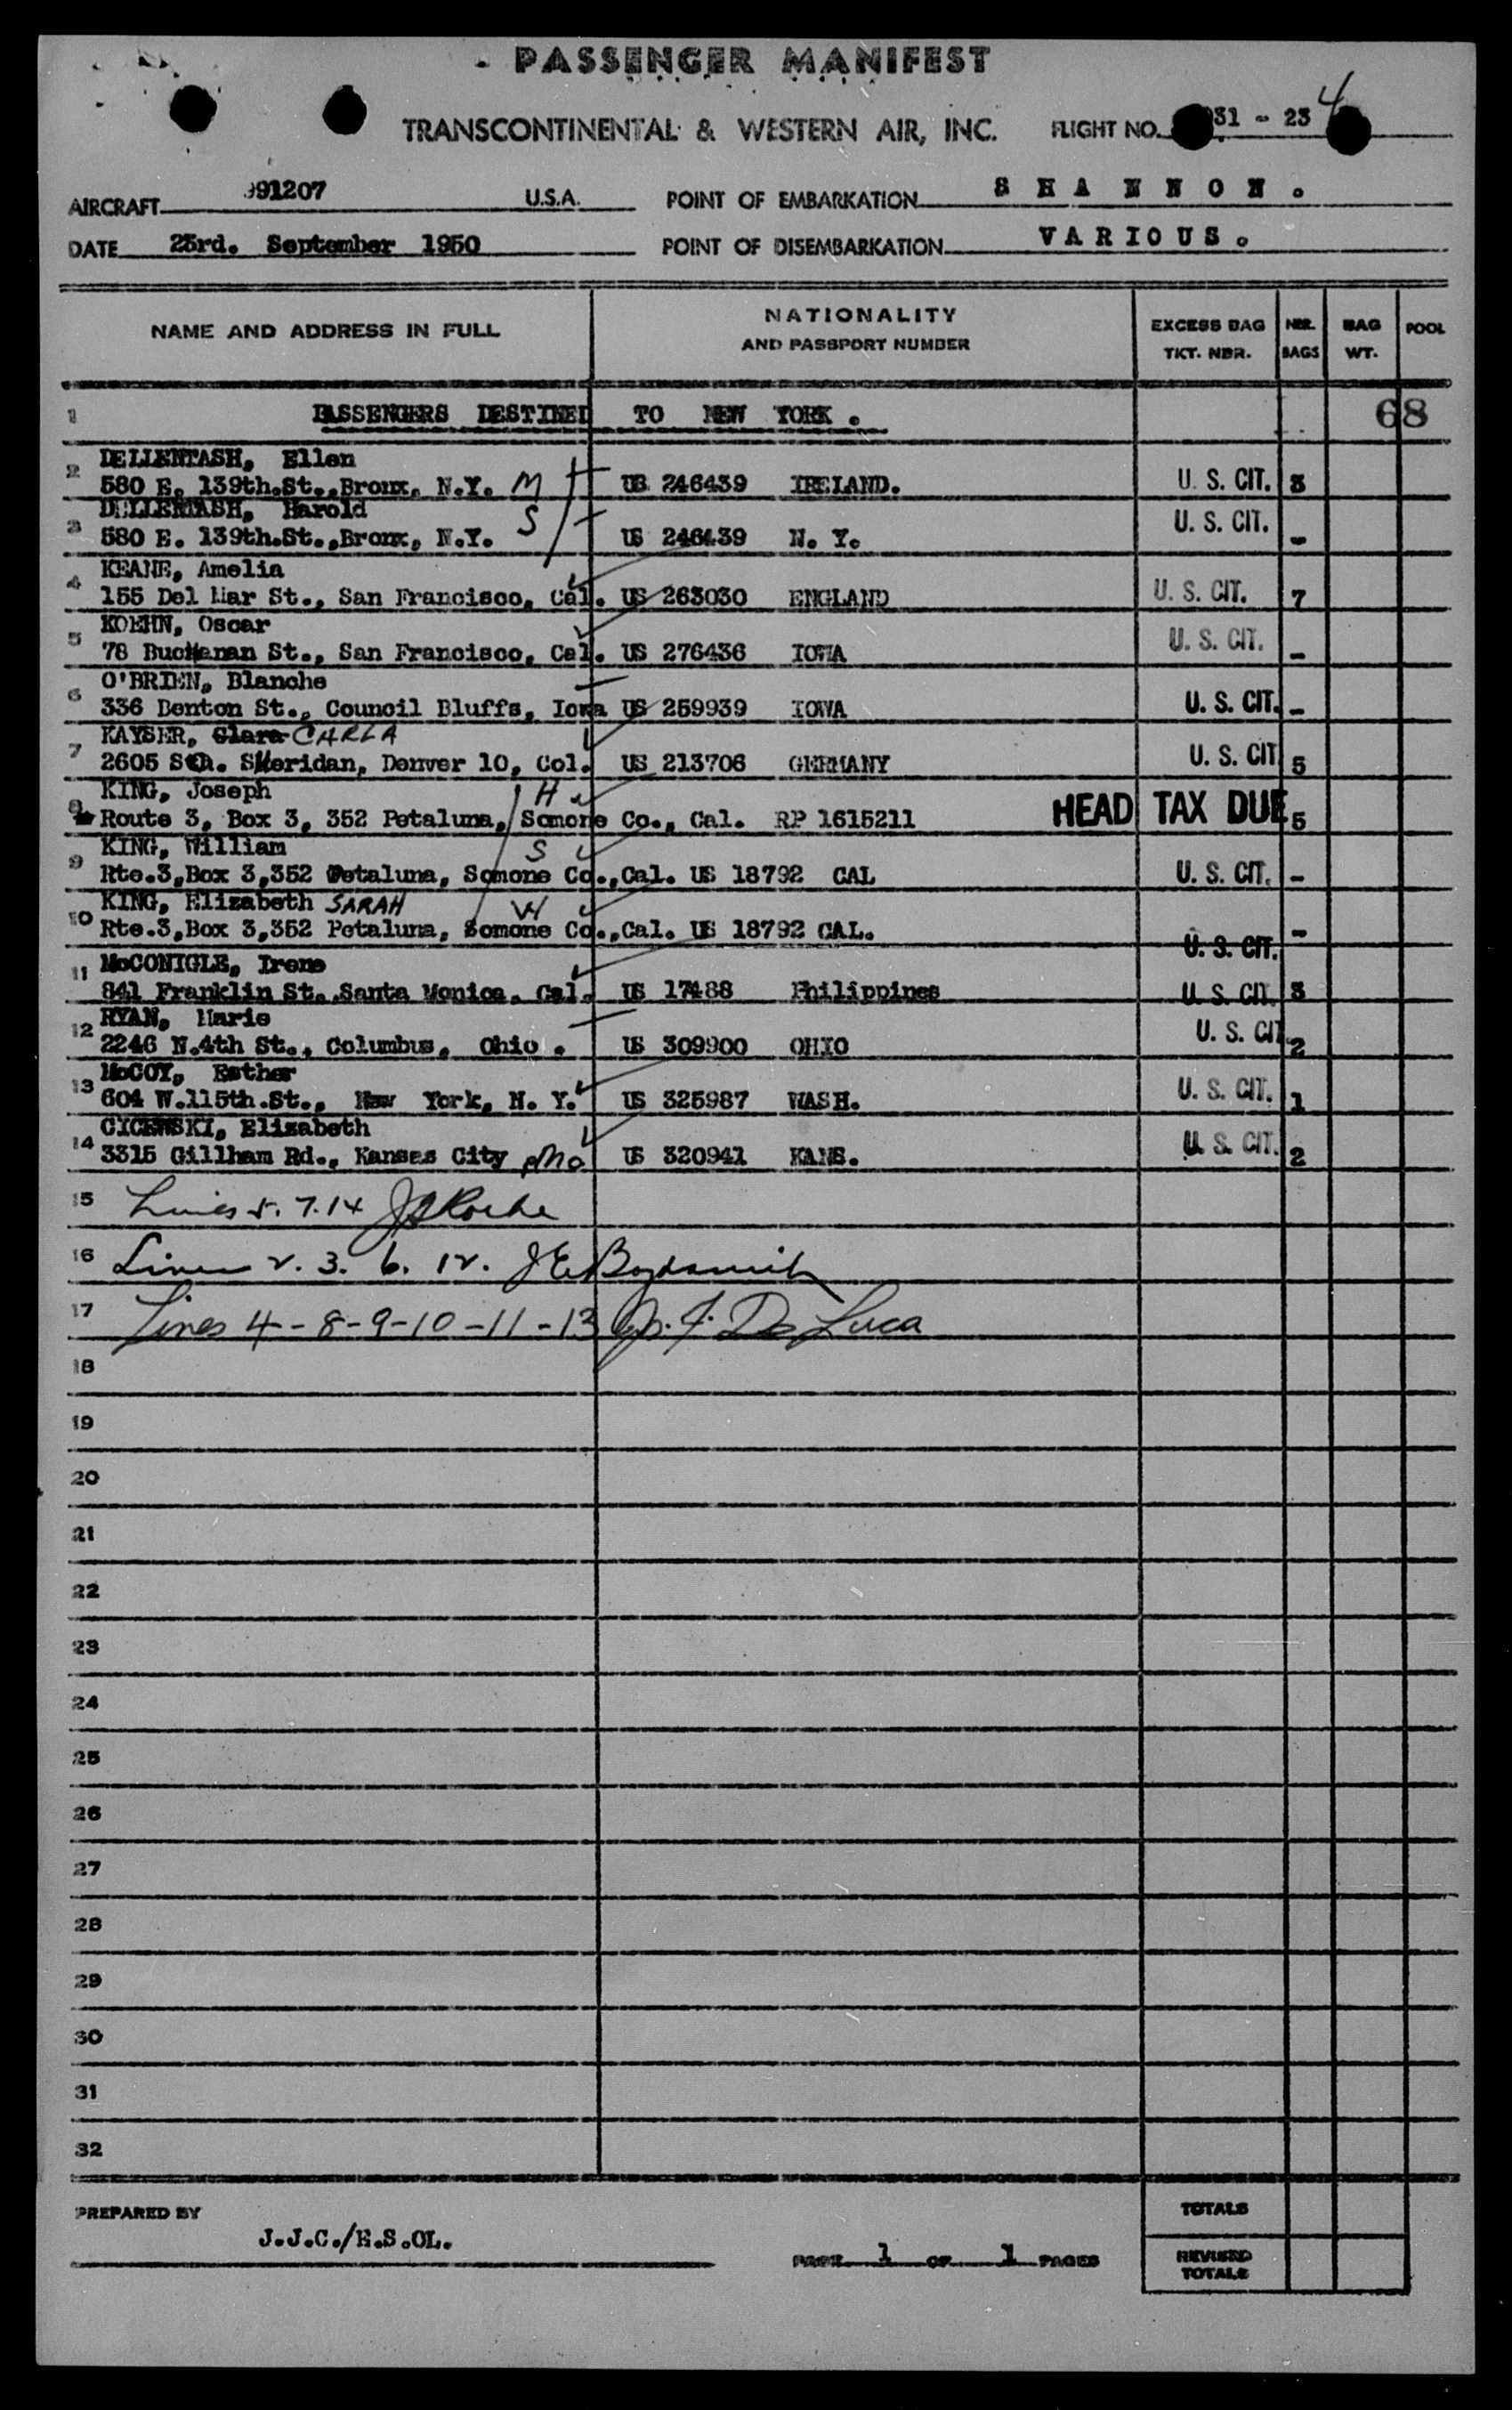 PASSENGER MANIFEST
TRANSCONTINENTAL & WESTERN AIR, INC. FLIGHT NO. 931 - 23 4
AIRCRAFT 91207 U.S.A. POINT OF EMBARKATION S H A N N O N .
DATE 23rd. September 1950 POINT OF DISEMBARKATION V A R I O U S .
NAME AND ADDRESS IN FULL NATIONALITY AND PASSPORT NUMBER EXCESS BAG TKT. NBR. NBR. BAGS BAG WT. POOL
1 PASSENGERS DESTINED TO NEW YORK . 68
2 DELLENTASH, Ellen
580 E. 139th.St.,Bronx, N.Y. M US 246439 IRELAND. U. S. CIT. 3
3 DELLENTASH, Harold
580 E. 139th.St.,Bronx, N.Y. S US 246439 N. Y. U. S. CIT. -
4 KEANE, Amelia
155 Del Mar St., San Francisco, Cal. US 263030 ENGLAND U. S. CIT. 7
5 KOEHN, Oscar
78 Buchanan St., San Francisco, Cal. US 276436 IOWA U. S. CIT. -
6 O'BRIEN, Blanche
336 Benton St., Council Bluffs, Iowa US 259939 IOWA U. S. CIT. -
7 KAYSER, Clara CARLA
2605 Sth. Sheridan, Denver 10, Col. US 213706 GERMANY U. S. CIT 5
8 KING, Joseph H
Route 3, Box 3, 352 Petaluna, Somone Co., Cal. RP 1615211 HEAD TAX DUE 5
9 KING, William S
Rte.3,Box 3,352 Petaluna, Somone Co.,Cal. US 18792 CAL U. S. CIT. -
10 KING, Elizabeth SARAH W
Rte.3,Box 3,352 Petaluna, Somone Co.,Cal. US 18792 CAL. U. S. CIT. -
11 McCONIGLE, Irene
841 Franklin St.,Santa Monica, Cal. US 17488 Philippines U. S. CIT. 3
12 RYAN, Marie
2246 N.4th St., Columbus, Ohio . US 309900 OHIO U. S. CIT 2
13 McCOY, Esther
604 W.115th.St., New York, N. Y. US 325987 WASH. U. S. CIT. 1
14 CYCEWSKI, Elizabeth
3315 Gillham Rd., Kansas City, Mo US 320941 KANS. U. S. CIT. 2
15 Lines 5. 7. 14 Roche
16 Lines 2. 3. 6. 12.
17 Lines 4-8-9-10-11-13 De Luca
18
19
20
21
22
23
24
25
26
27
28
29
30
31
32
PREPARED BY J.J.C./E.S.OL. PAGE 1 OF 1 PAGES
TOTALS
REVISED TOTALS